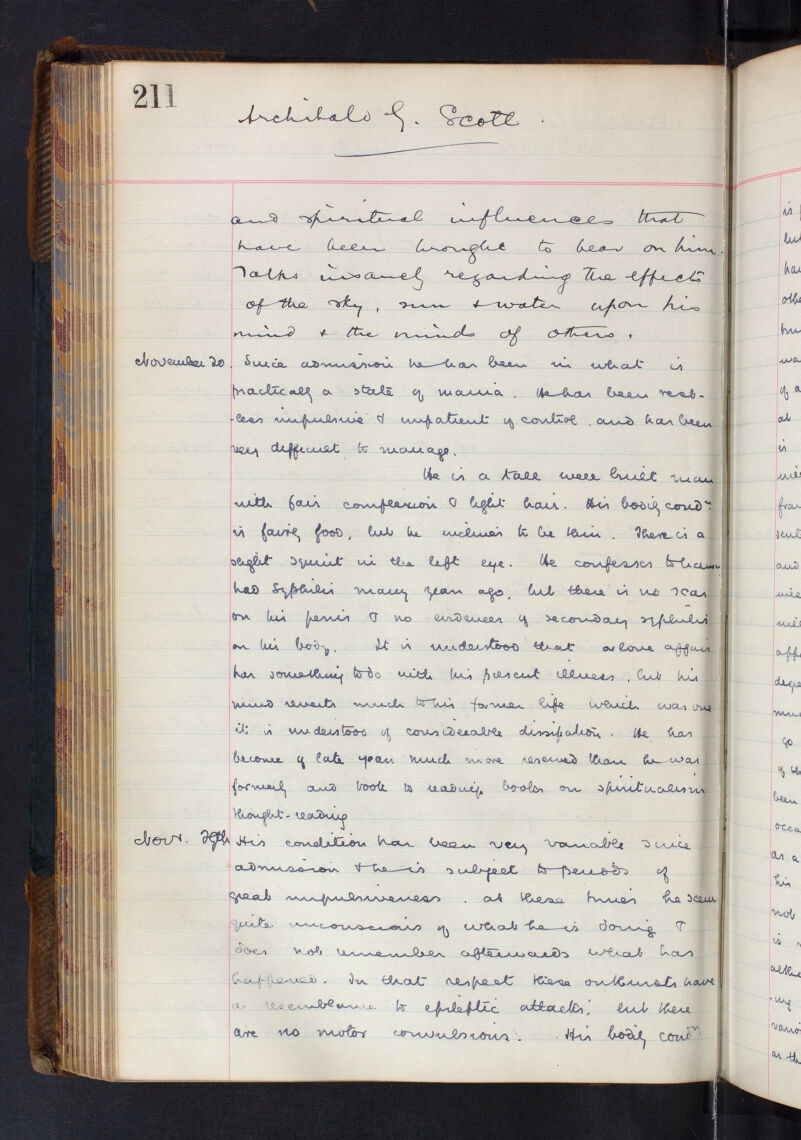 211
Archibald G. Scott.
and spiritual influences that
have been brought to bear on him.
Talks insanely regarding the effects
of the sky, sun & water upon his
mind & the minds of others.
November 20. Since admission he has been in what is
practically a state of mania. He has been rest-
-less impulsive & impatient of control and has been
very difficult to manage.
He is a tall well built man
with fair complexion & light hair. His bodily condn
is fairly good, but he inclines to be thin. There is a
slight squint in the left eye. He confesses to have
had Syphilis many years ago, but there is no scar
on his penis & no evidences of secondary syphilis
on his body. It is understood that a love affair
has something to do with his present illness, but his
mind reverts much to his former life which was one
it is understood of considerable dissipation. He has
become of late years much more reserved than he was
formerly and took to reading books on spiritualism
thought-reading
Novr. 29th His condition has been very variable since
admission & he is subject to periods of
great impulsiveness. at these times he seems
quite unconscious of what he is doing &
does not remember afterwards what has
happened. In that respect these outbursts have
a resemblance to epileptic attacks; but there
are no motor convulsions. His bodily condn